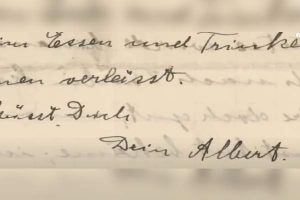 Essen und Trinke
verlässt.
Dich
Dein Albert.